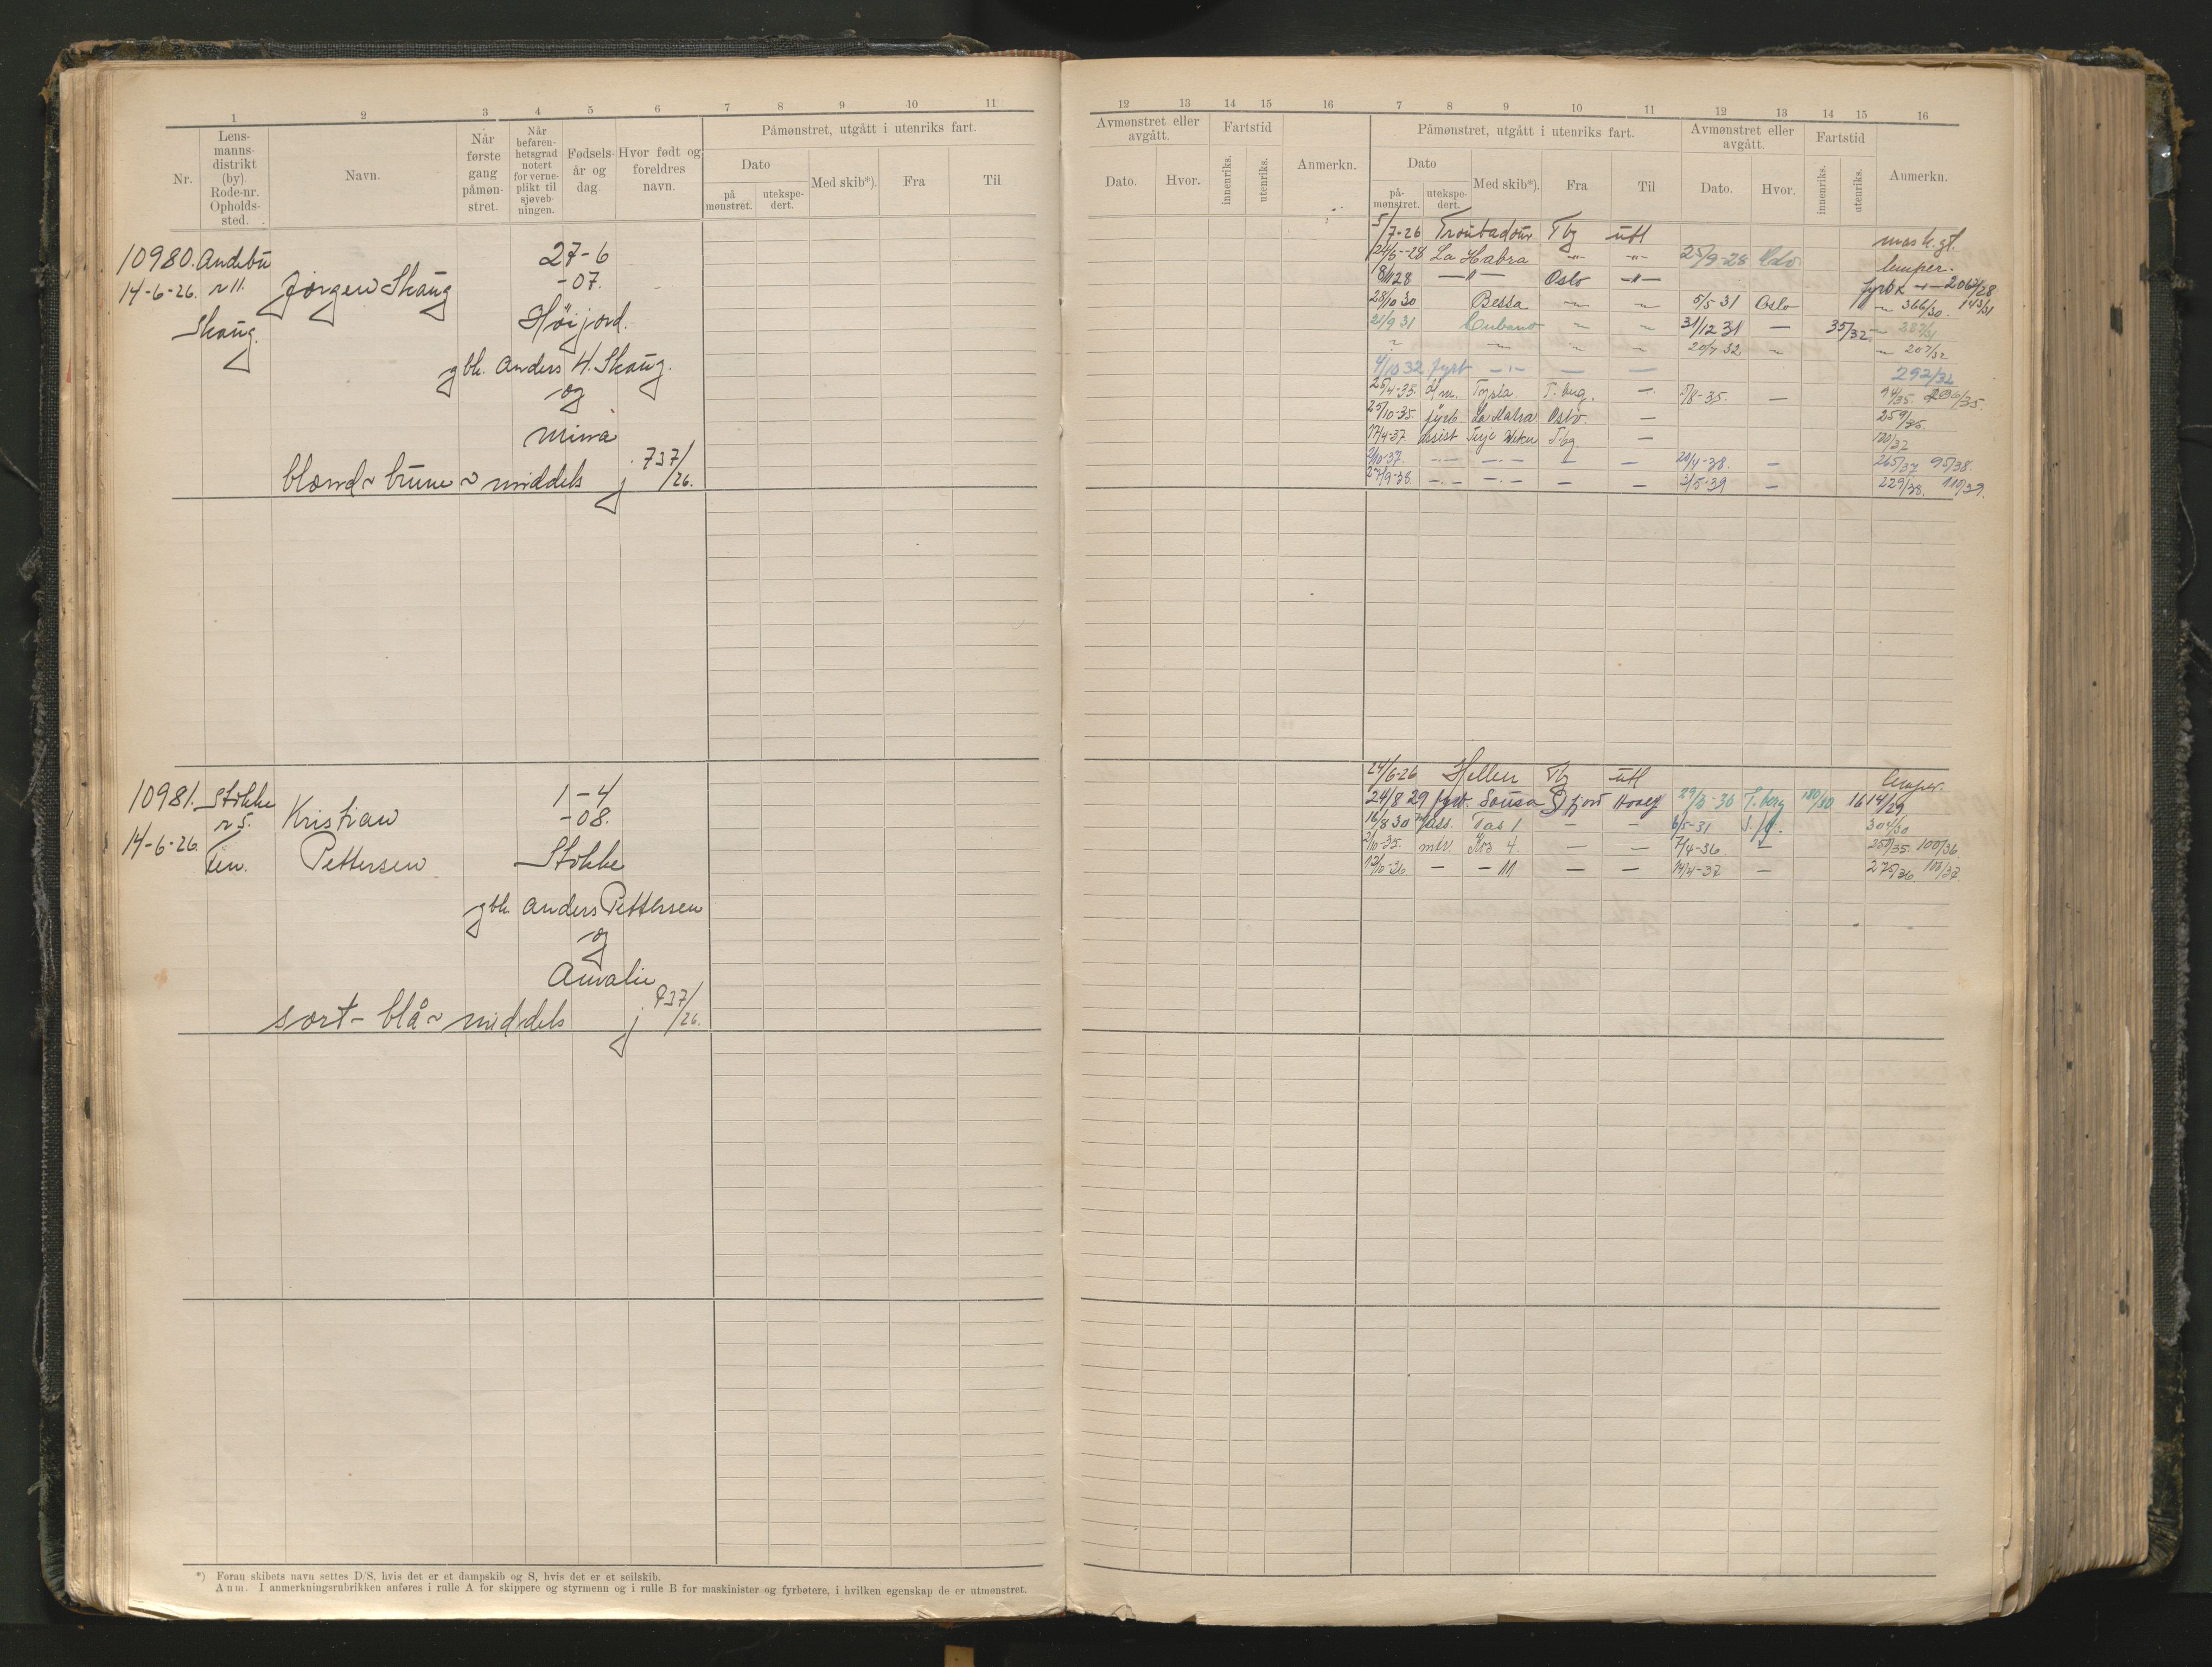 1 2 3 4 5 6 7 8 9 10 11
Nr.
Lens-
manns-
distrikt
(by).
Rode-nr.
Opholds-
sted.
Navn.
Når
første
gang
påmøn-
stret.
Når
befaren-
hetsgrad
notert
for verne-
plikt til
sjøveb-
ningen.
Fødsels-
år og
dag.
Hvor født og
foreldres
navn.
Påmønstret, utgått i utenriks fart.
Dato
på
mønstret.
utekspe-
dert.
Med skib*).
Fra
Til
10980. Andebu 27-6
14-6-26. r 11. Jørgen Skaug -07.
Skaug. Høijord.
gbr. Anders H. Skaug.
og
Mina
blond ~ brune ~ middels j 737/26.
10981. Stokke 1-4
r 5. Kristian -08.
14-6-26. Pettersen Stokke
gbr. Anders Pettersen
og
Amalie
sort - blå ~ middels j 737/26.
*) Foran skibets navn settes D/S, hvis det er et dampskib og S, hvis det er et seilskib.
Anm. I anmerkningsrubrikken anføres i rulle A for skippere og styrmenn og i rulle B for maskinister og fyrbøtere, i hvilken egenskap de er utmønstret.
12 13 14 15 16 7 8 9 10 11 12 13 14 15 16
Avmønstret eller
avgått.
Dato.
Hvor.
Fartstid
innenriks.
utenriks.
Anmerkn.
Påmønstret, utgått i utenriks fart.
Dato
på-
mønstret.
utekspe-
dert.
Med skib*).
Fra
Til
Avmønstret eller
avgått.
Dato.
Hvor.
Fartstid
innenriks.
utenriks.
Anmerkn.
5/7-26 Troubadour Tbg utl mask.gt.
24/5-28 La Habra -"- -"- 25/9-28 Oslo lemper.
8/11 28 -"- Oslo -"- fyrb
28/10 30 Bessa ~ ~ 5/5 31 Oslo ~ 366/30. 143/31
21/9 31 Cubano ~ ~ 31/12 31 — 35/32 ~ 287/31
~ ~ ~ 20/7 32 ~ ~ 207/32
4/10 32 fyrb -"- — — 292/32
25/4-35. T.bug. — 5/8-35. — 94/35.
25/10-35. fyrb La Habra Oslo. — 259/35.
17/4-37. assist Terje Viken T.bg. — 100/37
2/10-37. -"- -"- — — 20/4-38. — 265/37 95/38.
27/9-38. -"- -"- — — 3/5-39 — 229/38. 110/39.
24/6-26 Hellen Tbg utl lemper.
24/8 29 fyrb. Sousa S fjord Hvalf 29/3-30 T.berg 180/30. 1614/29
16/8 30 Tas 1 — — 6/5-31 S.fj. 304/30
2/10-35. 4. — — 7/4-36. — 250/35. 100/36
12/10-36. — - 11 — — 14/4-37 — 275/36. 103/37.